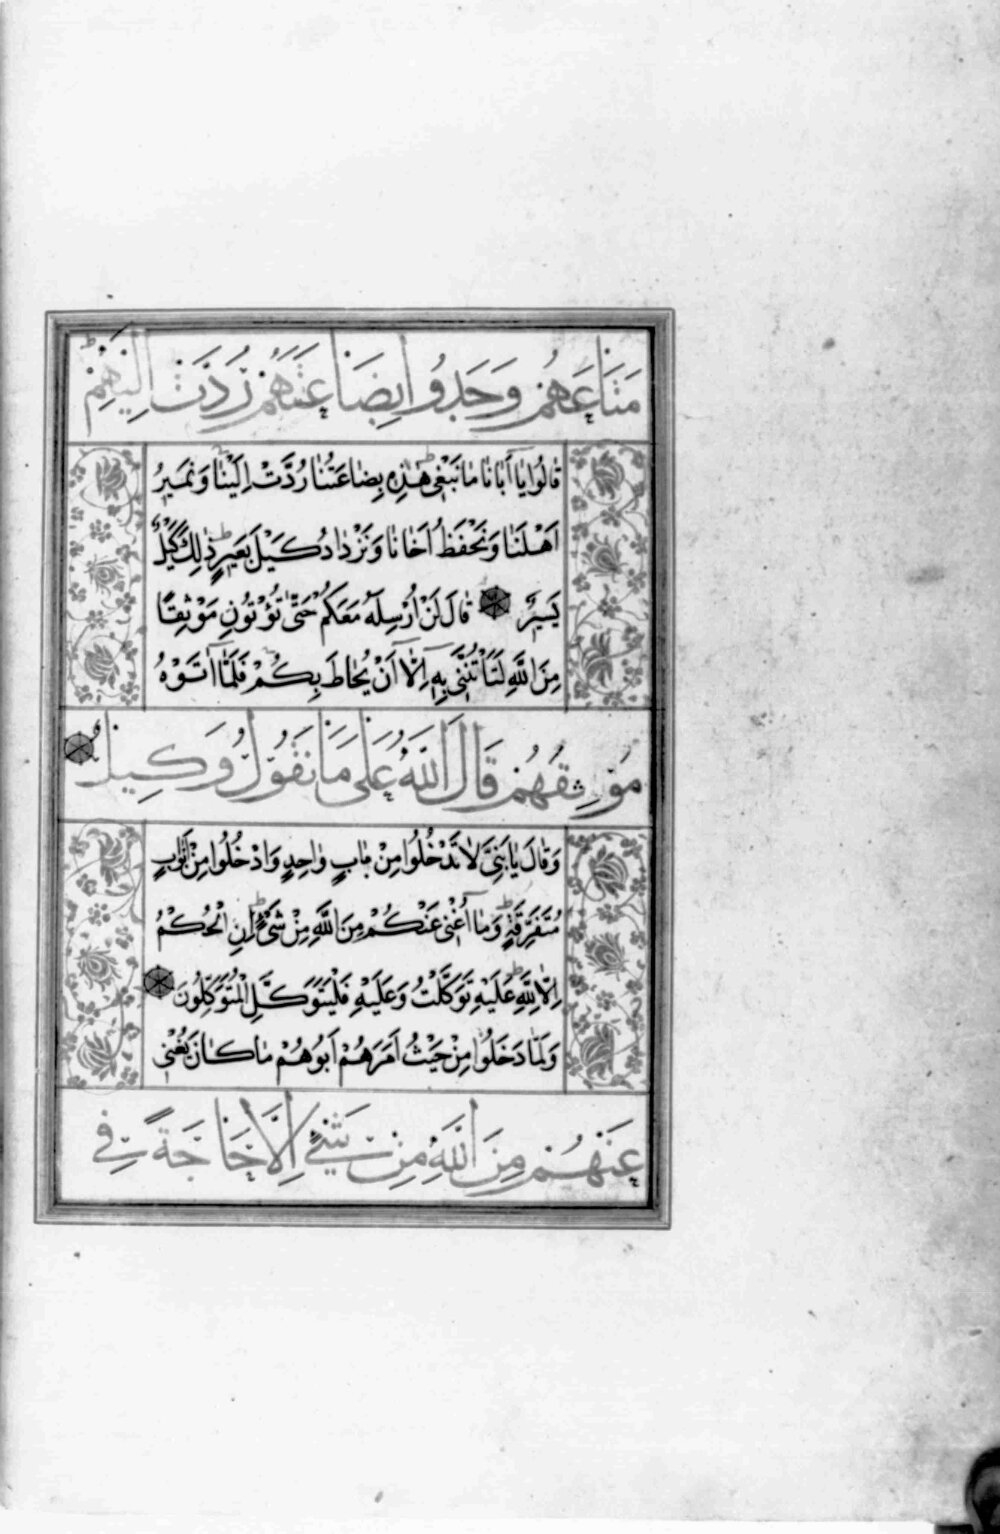 مَتَاعَهُمْ وَجَدُوا بِضَاعَتَهُمْ رُدَّتْ اِلَيْهِمْ
قَالُوا يَا اَبَانَا مَا نَبْغِى هٰذِهِ بِضَاعَتُنَا رُدَّتْ اِلَيْنَا وَنَمِيرُ
اَهْلَنَا وَنَحْفَظُ اَخَانَا وَنَزْدَادُ كَيْلَ بَعِيرٍ ذٰلِكَ كَيْلٌ
يَسِيرٌ قَالَ لَنْ اُرْسِلَهُ مَعَكُمْ حَتّٰى تُؤْتُونِ مَوْثِقًا
مِنَ اللّٰهِ لَتَأْتُنَّنِى بِهِ اِلَّا اَنْ يُحَاطَ بِكُمْ فَلَمَّا اٰتَوْهُ
مَوْثِقَهُمْ قَالَ اللّٰهُ عَلٰى مَا نَقُولُ وَكِيلٌ
وَقَالَ يَا بَنِىَّ لَا تَدْخُلُوا مِنْ بَابٍ وَاحِدٍ وَادْخُلُوا مِنْ اَبْوَابٍ
مُتَفَرِّقَةٍ وَمَا اُغْنِى عَنْكُمْ مِنَ اللّٰهِ مِنْ شَىْءٍ اِنِ الْحُكْمُ
اِلَّا لِلّٰهِ عَلَيْهِ تَوَكَّلْتُ وَعَلَيْهِ فَلْيَتَوَكَّلِ الْمُتَوَكِّلُونَ
وَلَمَّا دَخَلُوا مِنْ حَيْثُ اَمَرَهُمْ اَبُوهُمْ مَا كَانَ يُغْنِى
عَنْهُمْ مِنَ اللّٰهِ مِنْ شَىْءٍ اِلَّا حَاجَةً فِى